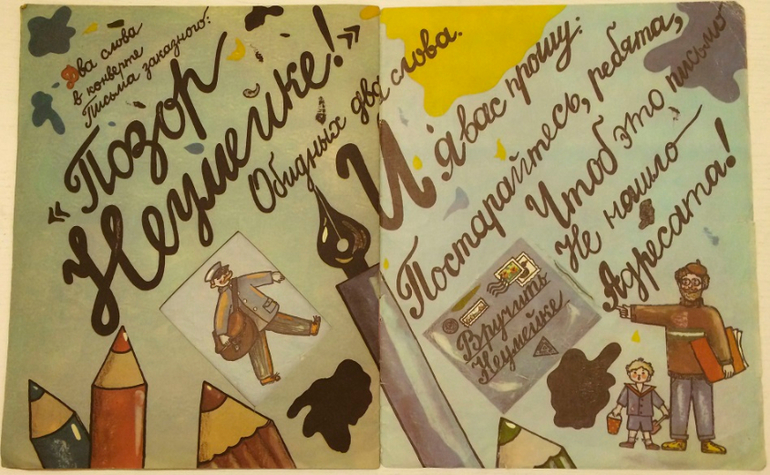 Два слова
в конверте
Письма заказного:
«Позор
Неумейке!»
Обидных два слова.
И я вас прошу:
Постарайтесь, ребята,
Чтоб это письмо
Не нашло
Адресата!
Вручить
Неумейке